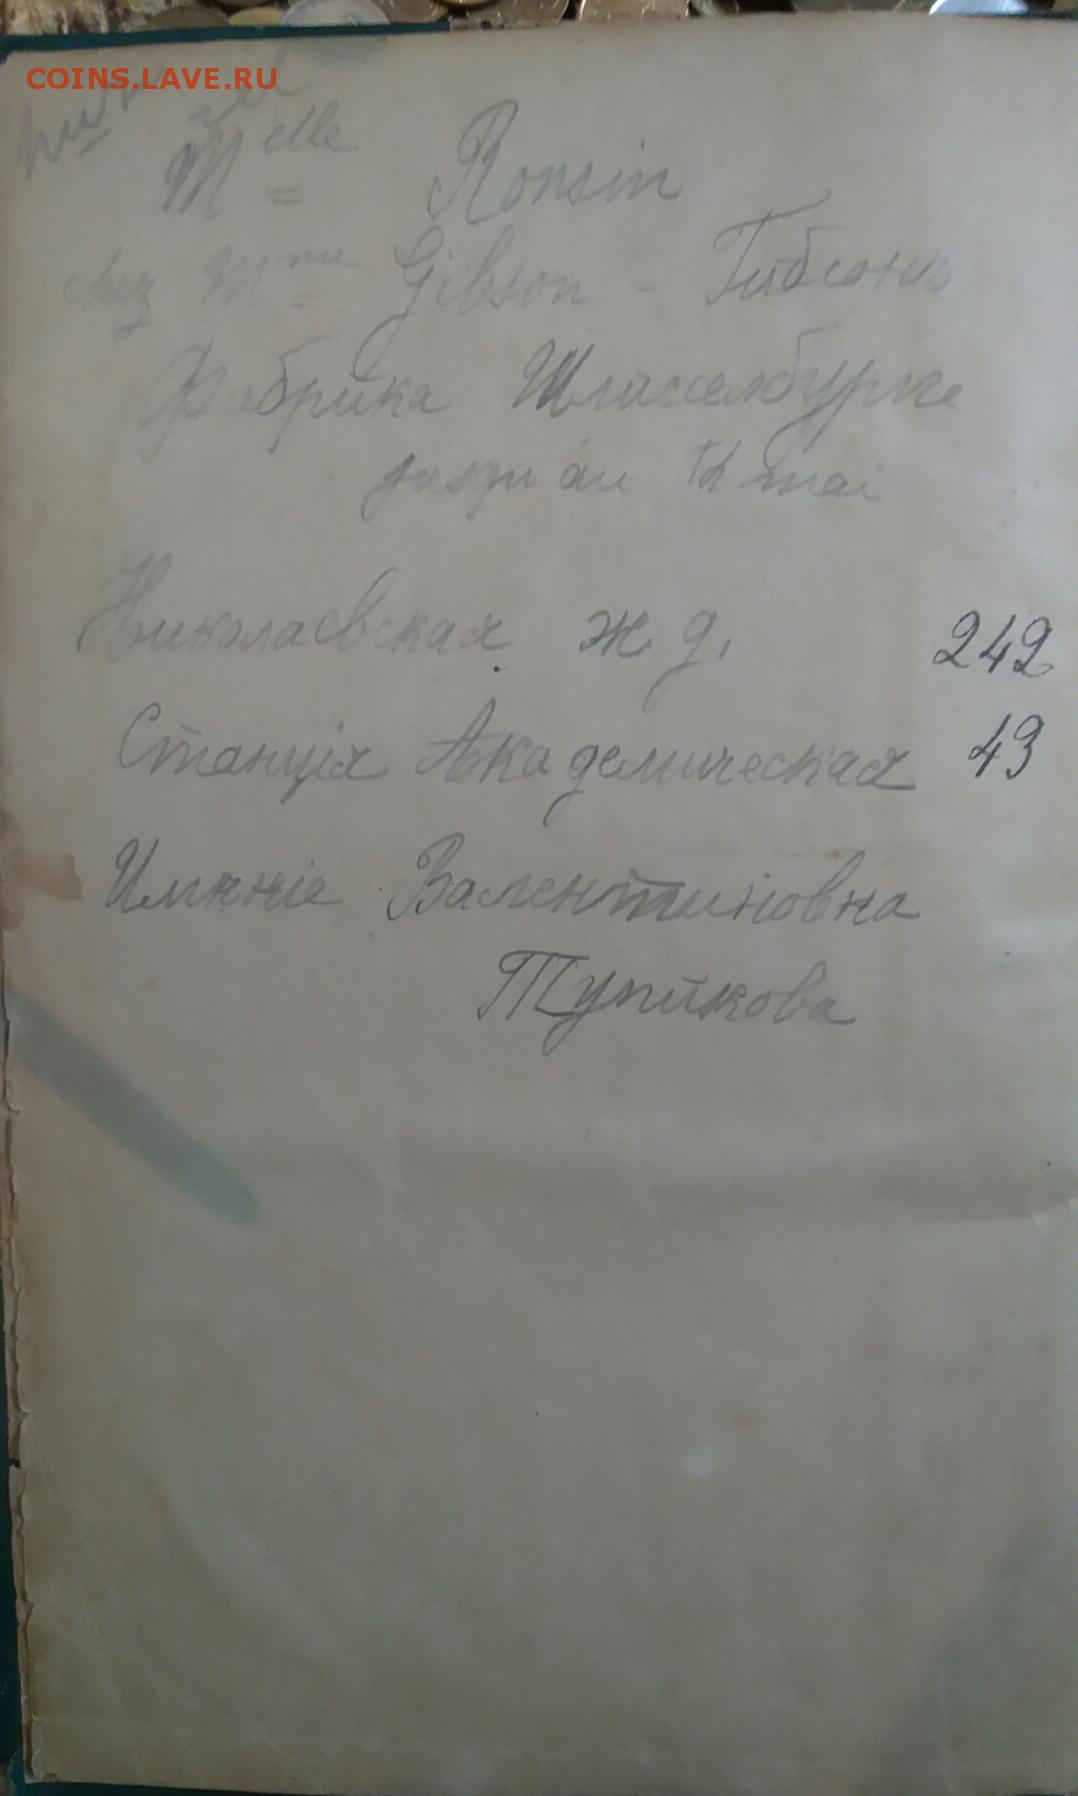 COINS.LAVE.RU
Melle Ronsin
chez Mme Gibson - Гибсонъ
Фабрика Шлиссельбурге
jusqu'au 12 mai
Николаевская ж. д. 242
Станція Академическая 43
Имѣніе Валентиновна
Тупикова